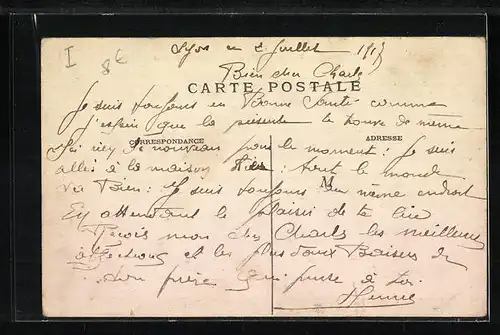 I 8€
Lyon le 2 Juillet 1915
Bien cher Charles
CARTE POSTALE
Je suis toujours en Bonne Santé comme
j'espère que la présente te trouve de meme
CORRESPONDANCE
ADRESSE
rien de nouveau pour le moment : Je suis
allé à la maison : tout le monde
va Bien : Je suis toujours au même endroit
M
En attendant le plaisir de te lire
Reçois mon cher Charles les meilleures
affections et les plus doux Baisers de
ton frère qui pense à toi